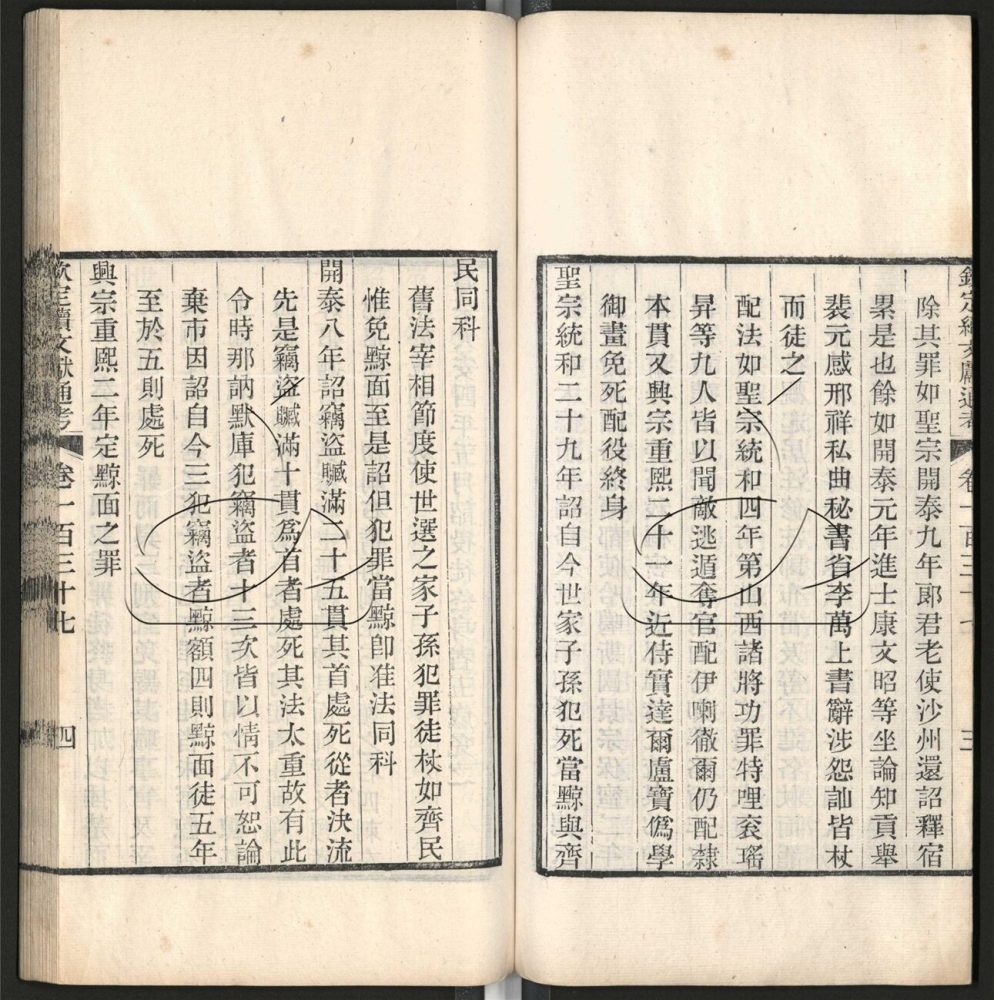 欽定續文獻通考 卷一百三十七 三
除其罪如聖宗開泰九年郎君老使沙州還詔釋宿
累是也餘如開泰元年進士康文昭等坐論知貢舉
裴元感邢祥私曲秘書省李萬上書辭涉怨訕皆杖
而徒之
配法如聖宗統和四年第山西諸將功罪特理袞瑤
昇等九人皆以聞敵逃遁奪官配伊喇徹爾仍配隸
本貫又興宗重熙二十一年近侍實達爾盧寶僞學
御畫免死配役終身
聖宗統和二十九年詔自今世家子孫犯死當黥與齊
民同科
舊法宰相節度使世選之家子孫犯罪徒杖如齊民
惟免黥面至是詔但犯罪當黥卽准法同科
開泰八年詔竊盜贓滿二十五貫其首處死從者決流
先是竊盜贓滿十貫爲首者處死其法太重故有此
令時那訥默庫犯竊盜者十三次皆以情不可恕論
棄市因詔自今三犯竊盜者黥額四則黥面徒五年
至於五則處死
興宗重熙二年定黥面之罪
欽定續文獻通考 卷一百三十七 四